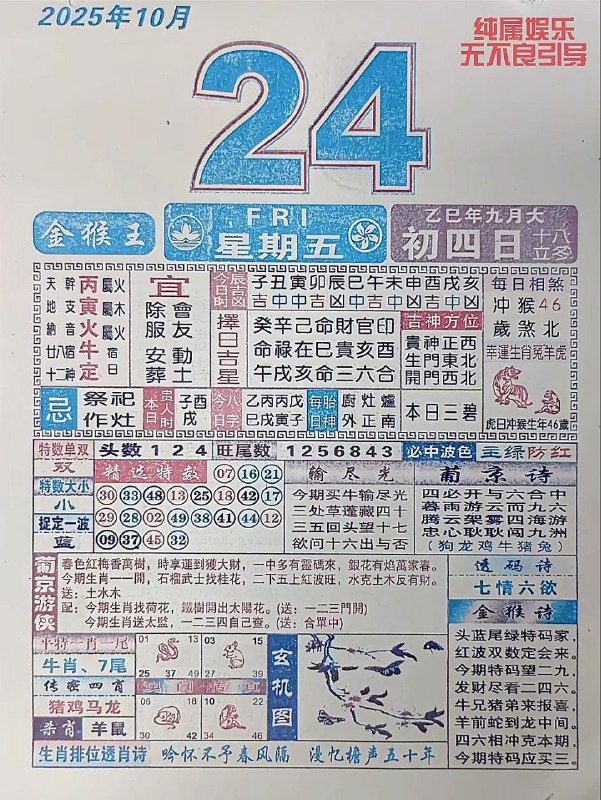 2025年10月
纯属娱乐
无不良引导
24
金猴王
FRI
星期五
乙巳年九月大
初四日
十八
立多
天幹丙屬火
地支寅屬木
納音火屬火
廿八宿牛宿
十二神定日
宜
除會
服友
安動
葬土
今日吉時
辰吉凶
子丑寅卯辰巳午未申酉戌亥
擇日吉星
癸辛己命財官印
命祿在巳貴亥酉
午戌亥命三六合
吉神方位
貴神正西
生門東北
開門西北
每日相煞
沖猴46
歲煞北
幸運生肖兔羊虎
虎日冲猴生年46歲
忌
祭祀
作灶
本日
貴人時
子酉
戌
今日
八字
乙丙丙戊
巳戌寅子
每日
胎神
廚灶爐
外正南
本日三碧
特数单双
双
特数大小
小
捉定一波
蓝
头数 1 2 4
旺尾数
1256843
必中波色
主绿防红
精选特数
07 16 21
30 33 48 13 25 18 42 17
29 28 02 49 38 41 44 12
09 37 45 32
输尽光
今期买牛输尽光
三处草蓬藏四十
三五回头望十七
欲问十六出与否
葡京诗
四必开与六合中
暮雨游云而九六
腾云架雾四海游
忠心耿耿闯九洲
(狗龙鸡牛猪兔)
葡京游侠
春色紅梅香萬樹，時享運到獲大財，一中多有靈碼來，銀花有焰萬家春。
今期生肖一一開，石榴武士找桂花，二下五上紅波旺，水克土木反有財。
送：土水木
配：今期生肖找荷花，鐵樹開出太陽花。(送：一二三門開)
今期生肖送太監，一二三四自己查。(送：合單中)
透码诗
七情六欲
金猴诗
头蓝尾绿特码家，
红波双数定会来。
今期特码望二九，
发财尽看二四六。
牛兄猪弟来报喜，
羊前蛇到龙中间。
四六相冲克本期，
今期特码应买三。
平特一肖一尾
牛肖、7尾
传密四肖
猪鸡马龙
杀肖
羊鼠
01 13 03 15
25 37 49 39
澳门传真
06 18 10 22
30 42 34 46
玄机图
生肖排位透肖诗
吟怀不予春风隔
漫忆檐声五十年